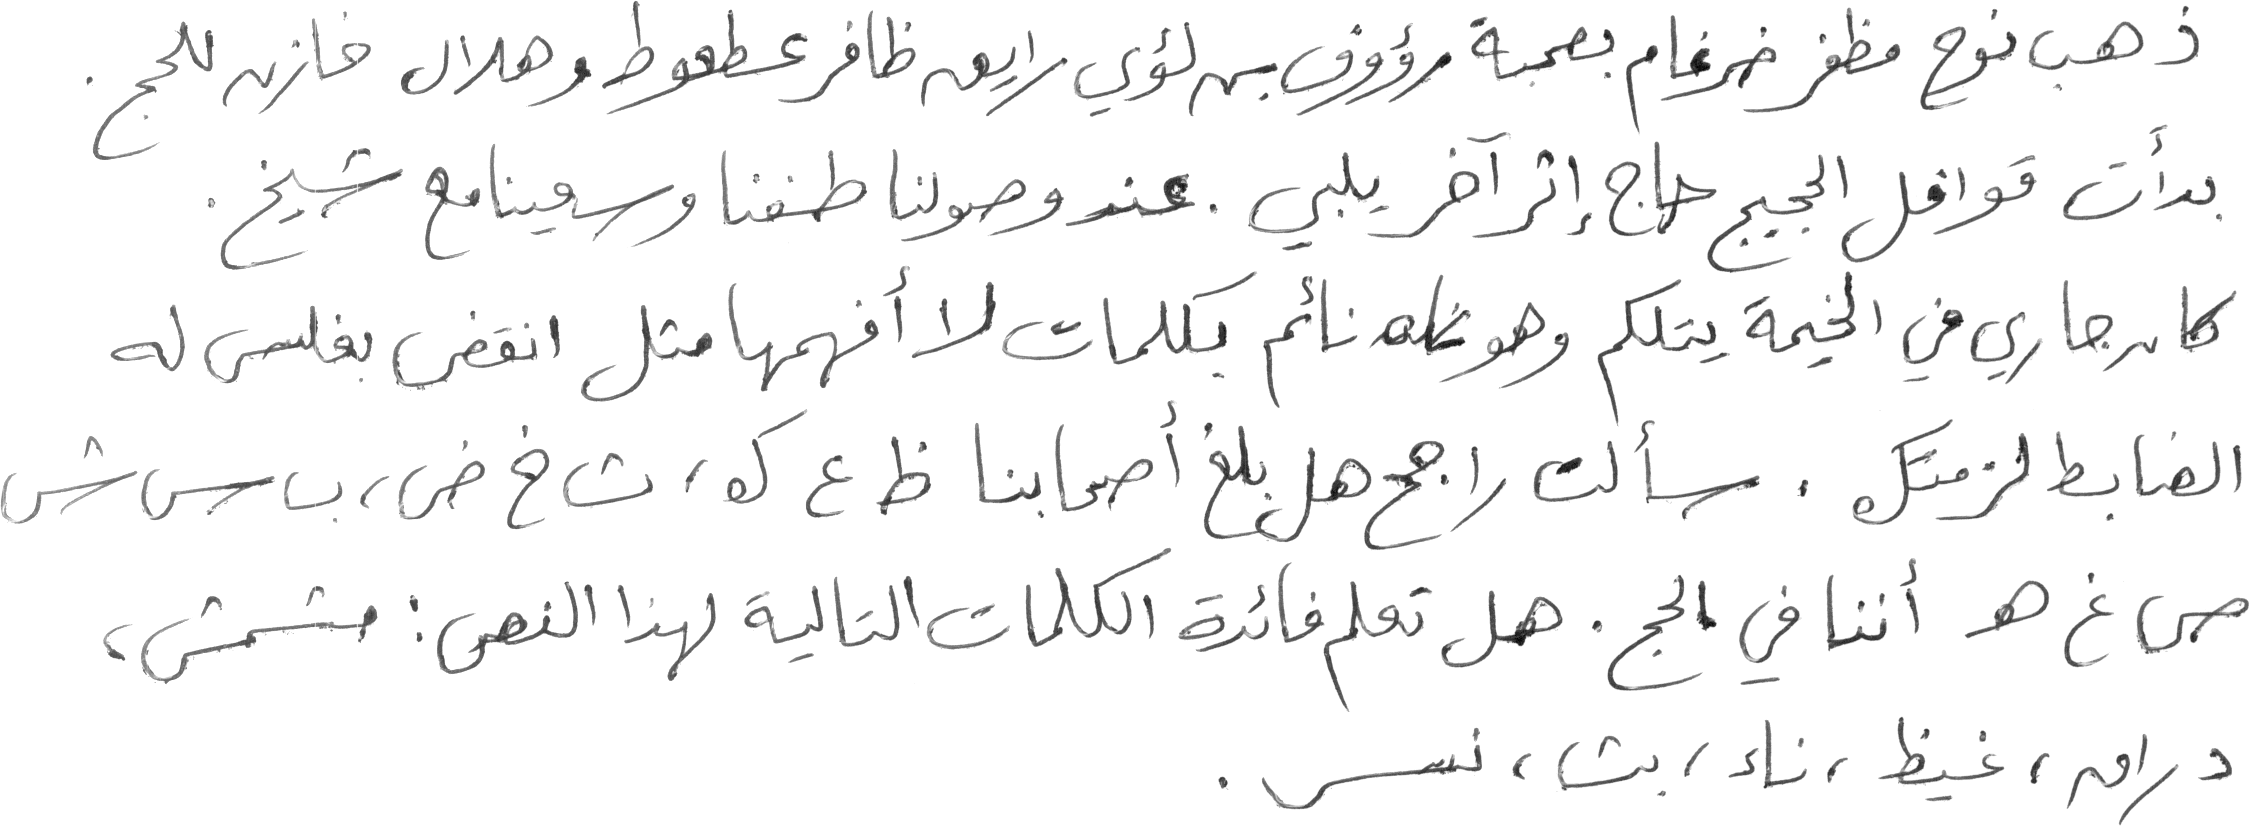 ذهب نوح مظفر ضرغام بصحبة رؤوف بن لؤي رايق ظافر عطعوط وهلال خازن للحج .
بدأت قوافل الحجيج حاج إثر آخر يلبي . عند وصولنا طفنا وسعينا مع شيخ .
كان جاري في الخيمة يتكلم وهو نائم بكلمات لا أفهمها مثل انقض بغلس له
الضابط لزمتك . سألت راجح هل بلغ أصحابنا ظ ع ك ، ث خ ض ، ب س ش
ص غ هـ أننا في الحج . هل تعلم فائدة الكلمات التالية لهذا النص : مشمش ،
دراق ، غيظ ، ناء ، بث ، نسر .